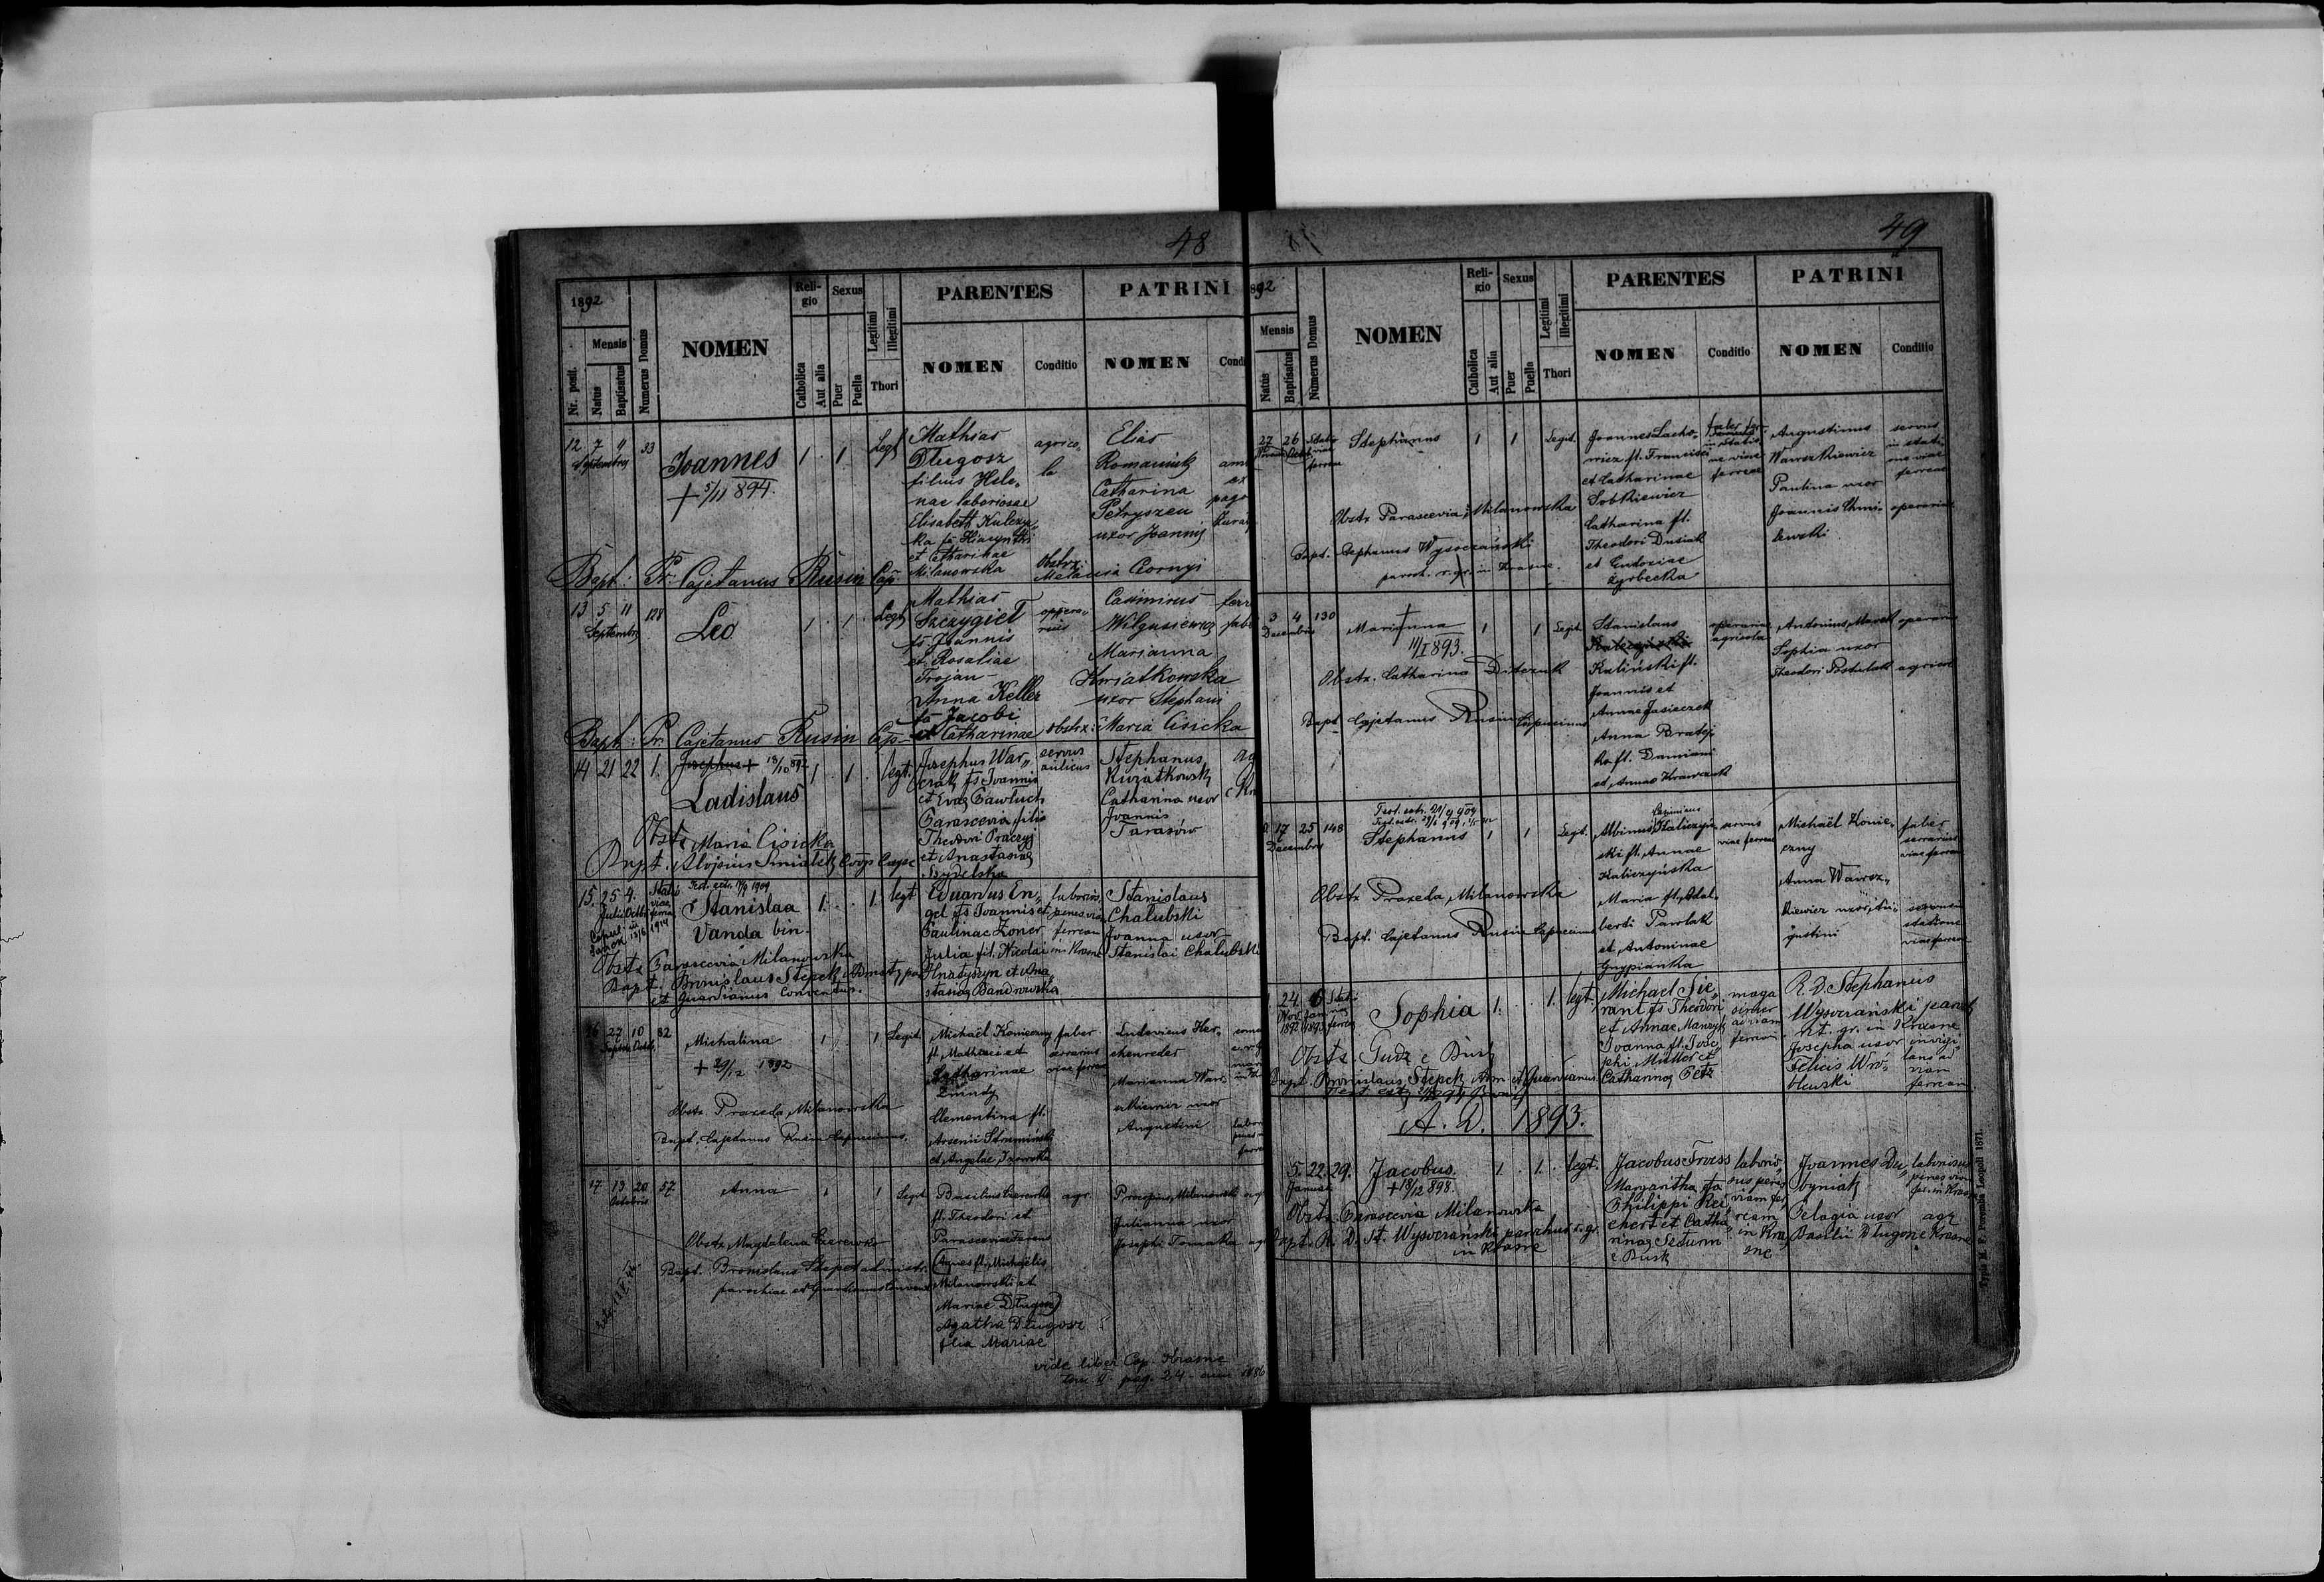 48
1892
Mensis
Nr. posit.
Natus
Baptisatus
Numerus Domus
NOMEN
Reli-
gio
Catholica
Aut alia
Sexus
Puer
Puella
Legitimi
Illegitimi
Thori
PARENTES
NOMEN
Conditio
PATRINI
NOMEN
Condi
12 7 11 33
Septembris
Joannes
+ 5/11 894.
1 1 Legt
Mathias
Długosz
filius Hele„
nae laboriosae
Elisabeth Kulczyc„
ka fa Hiacynthi
et Catharinae
Milanowska
agrico„
la
Elias
Romaniuk
Catharina
Petryszen
uxor Joannis
Bapt: Pr. Cajetanus Rusin Cap.
Obstr:
Melania Czornyj
13 5 11 128
Septembr.
Leo
1 1 Legt
Mathias
Szczygieł
fs Joannis
et Rosaliae
Trojan
Anna Keller
fa Jacobi
et Catharinae
oppera„
rius
Casimirus
Wilgusiewicz
Marianna
Kwiatkowska
uxor Stephani
Bapt: Pr. Cajetanus Rusin Cap.
obstr: Maria Cisicka
14 21 22 1.
Josephus + 18/10 892
Ladislaus
1. 1. legt.
Josephus War„
czak fs Joannis
et Evae Pawluch
Parascevia filia
Theodori Praczyj
et Anastasiae
servus
aulicus
Stephanus
Kwiatkowski
Catharina uxor
Joannis
Tarasów
Obstr. Maria Cisicka
Bapt. Aloisius Smiałek Coop
15. 25 4.
Julii Octbr.
Stanislaa
Vanda bin.
1. 1. legt
Eduardus En„
gel fs Joannis et
Paulinae Zoner
Julia fil. Nicolai
Hnatyszyn et Ana„
stasiae Bandrowska
laborios.
penes viam
ferream
in Krasne
Stanislaus
Chalubski
Joanna uxor
Stanislai Chalubski
Obstr. Parascevia Milanowska
Bapt. Bronislaus Stepek Admstr. par.
et Guardianus Conventus.
16 27 10 82
Septbr. Octob.
Michalina
+ 29/12 1892
1 1 Legit
Michaël Konieczny
fl. Mathaei et
Catharinae
Zmudy
Clementina fl.
Arsenii Strumiński
et Angelae
faber
serrarius
viae ferreae
Ludovicus Her„
chenreder
Marianna Wawr„
uxor
Augustini
Obstr. Praxeda Milanowska
Bapt. Cajetanus Rusin Capucinus.
17 13 20 57
Octobris
Anna
1 1 Legit
Basilius Czerewko
fl. Theodori et
Parasceviae
(Agnes fl. Michaëlis
Milanowski et
Mariae Długosz)
Agatha Długosz
filia Mariae
agr.
Procopius Milanowski
Julianna uxor
Josephi Tomaka
Obstr. Magdalena Czerewko
Bapt. Bronislaus Stepek administr.
parochiae et Guardianus Conventus
vide liber Cop. Krasne
tom. II. pag. 24 - anni 1886
49
892
Mensis
Natus
Baptisatus
Numerus Domus
NOMEN
Reli-
gio
Catholica
Aut alia
Sexus
Puer
Puella
Legitimi
Illegitimi
Thori
PARENTES
NOMEN
Conditio
PATRINI
NOMEN
Conditio
27 26
Statio
viae
ferreae
Stephanus
1 1 Legit.
Joannes Lacho„
wicz fl. Francisci
et Catharinae
Sobkiewicz
Catharina fl.
Theodori Dusiak
et Eudoxiae
Zyrbecka
in statio„
ne viae
ferreae
Augustinus
Wawszkiewicz
Paulina uxor
Joannis Chmi„
lewski
servus
in stati„
one viae
ferreae
operarius
Obstr. Parascevia Milanowska
Bapt. Stephanus Wysoczański
paroch. r. gr. in Krasne.
3 4 130
Decembris
+
Marianna
11/I 893.
1 1 Legit.
Stanislaus
Kaliński fl.
Joannis et
Annae Jasieczek
Anna Bratej„
ko fl. Damiani
et Annae Krawczuk
operarius
agricola
Antonius Marek
Sophia uxor
Theodori Postulak
operarius
agricol
Obstr. Catharina Ditczuk
Bapt. Cajetanus Rusin Capucinus
17 25 148
Decembris
Test. extr. 21/9 909
Stephanus
1 1 Legit.
Albinus Kaliczyń„
ski fl. Annae
Kaliczyńska
Maria fl. Adal„
berti Pawlak
et Antoninae
Gnypianka
servus
viae ferreae
Michaël Konie„
czny
Anna Wawsz„
kiewicz uxor Au„
gustini
faber
serrarius
viae ferreae
servus in
statione
viae ferreae
Obstr. Praxeda Milanowska
Bapt. Cajetanus Rusin Capucinus
24. 6
Nov. Jan.
1892 1893
Sophia
1. 1. legt.
Michael Sie„
rant fs Theodori
et Annae Manzyk
Joanna fl. Jose„
phi Müller et
Catharinae Petz
maga
ziner
ad viam
ferream
R. D. Stephanus
Wysoczański paroch.
rt. gr. in Krasne
Josepha uxor
Felicis Wró„
blewski
invigi„
lans ad
viam
ferream
Obstr. Gudz e Busk
Bapt. Bronislaus Stepek Adm. et Guardianus.
A. D. 1893.
5. 22. 29.
Januar.
Jacobus.
+ 18/12 898.
1. 1. legt.
Jacobus Tross
Margaritha fa
Philippi Rei„
chert et Catha„
rinae Seturm
e Busk
laborio„
sus penes
viam fer„
ream
in Kra„
sne
Joannes Du„
byniak
Pelagia uxor
Basilii Długosz e Krasne
laboriosus
penes viam
fer. in Krasne
agr
Obstr. Parascevia Milanowska
Bapt. R. D. St. Wysoczański parochus r. gr.
in Krasne
Typis M. F. Poremba Leopoli 1871.